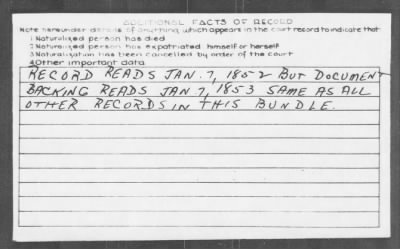 ADDITIONAL FACTS OF RECORD
Note hereunder details of anything which appears in the court record to indicate that
1. Naturalized person has died
2. Naturalized person has expatriated himself or herself
3. Naturalization has been cancelled by order of the court
4. Other important data
RECORD READS JAN. 7, 1852 BUT DOCUMENT
BACKING READS JAN 7, 1853 SAME AS ALL
OTHER RECORDS IN THIS BUNDLE.